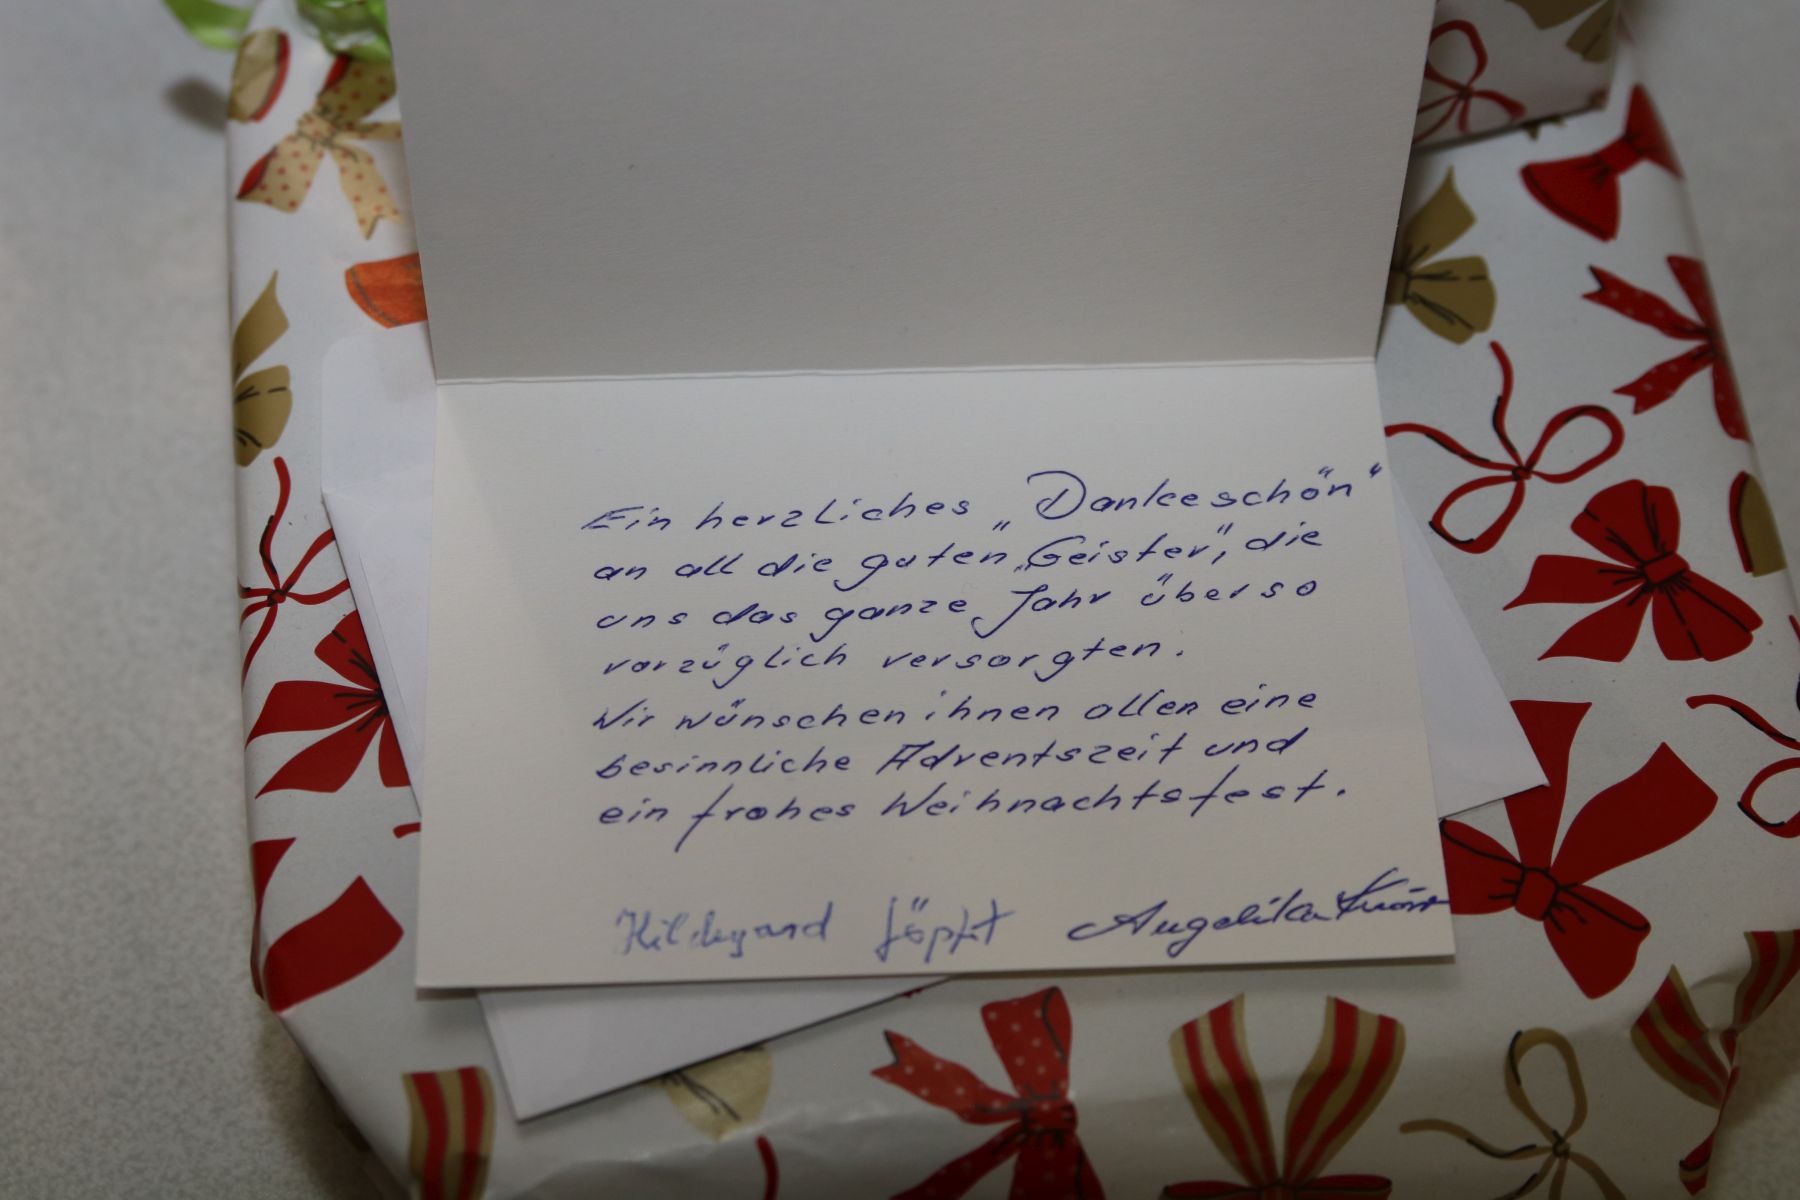 Ein herzliches „Dankeschön“
an all die guten „Geister“, die
uns das ganze Jahr über so
vorzüglich versorgten.
Wir wünschen ihnen allen eine
besinnliche Adventszeit und
ein frohes Weihnachtsfest.
Hildegard Angelika